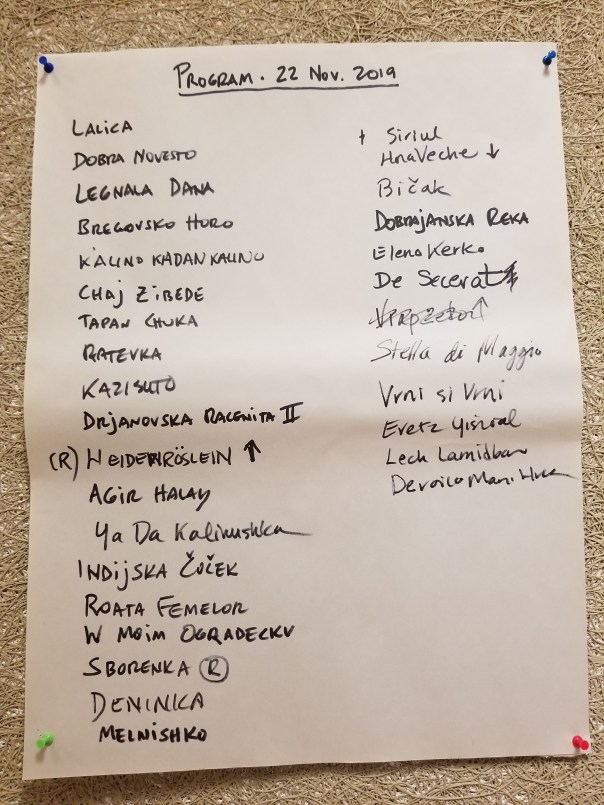 PROGRAM. 22 NOV. 2019
LALICA
DOBRA NOVESTO
LEGNALA DANA
BREGOVSKO HORO
KALINO KADAN KALINO
CHAJ ZIBEDE
TAPAN CHUKA
RATEVKA
KAZISUTO
DRJANOVSKA RACENITA II
(R) HEIDENRÖSLEIN ↑
AGIR HALAY
Ya Da Kalinushka
INDIJSKA ČOČEK
ROATA FEMELOR
W MOIM OGRADECKU
SBORENKA (R)
DENINKA
MELNISHKO
Siriul
AnaVeche ↓
Bičak
DOBRAJANSKA REKA
Eleno Kerko
De Secerat
↑
Stella di Maggio
Vrni si Vrni
Eretz Yisrael
Lech Lamidbar
Devoico Mari Huba